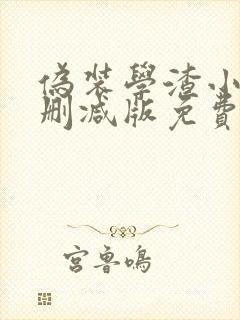 偽裝學渣小
刪減版免費
宮魯鳴